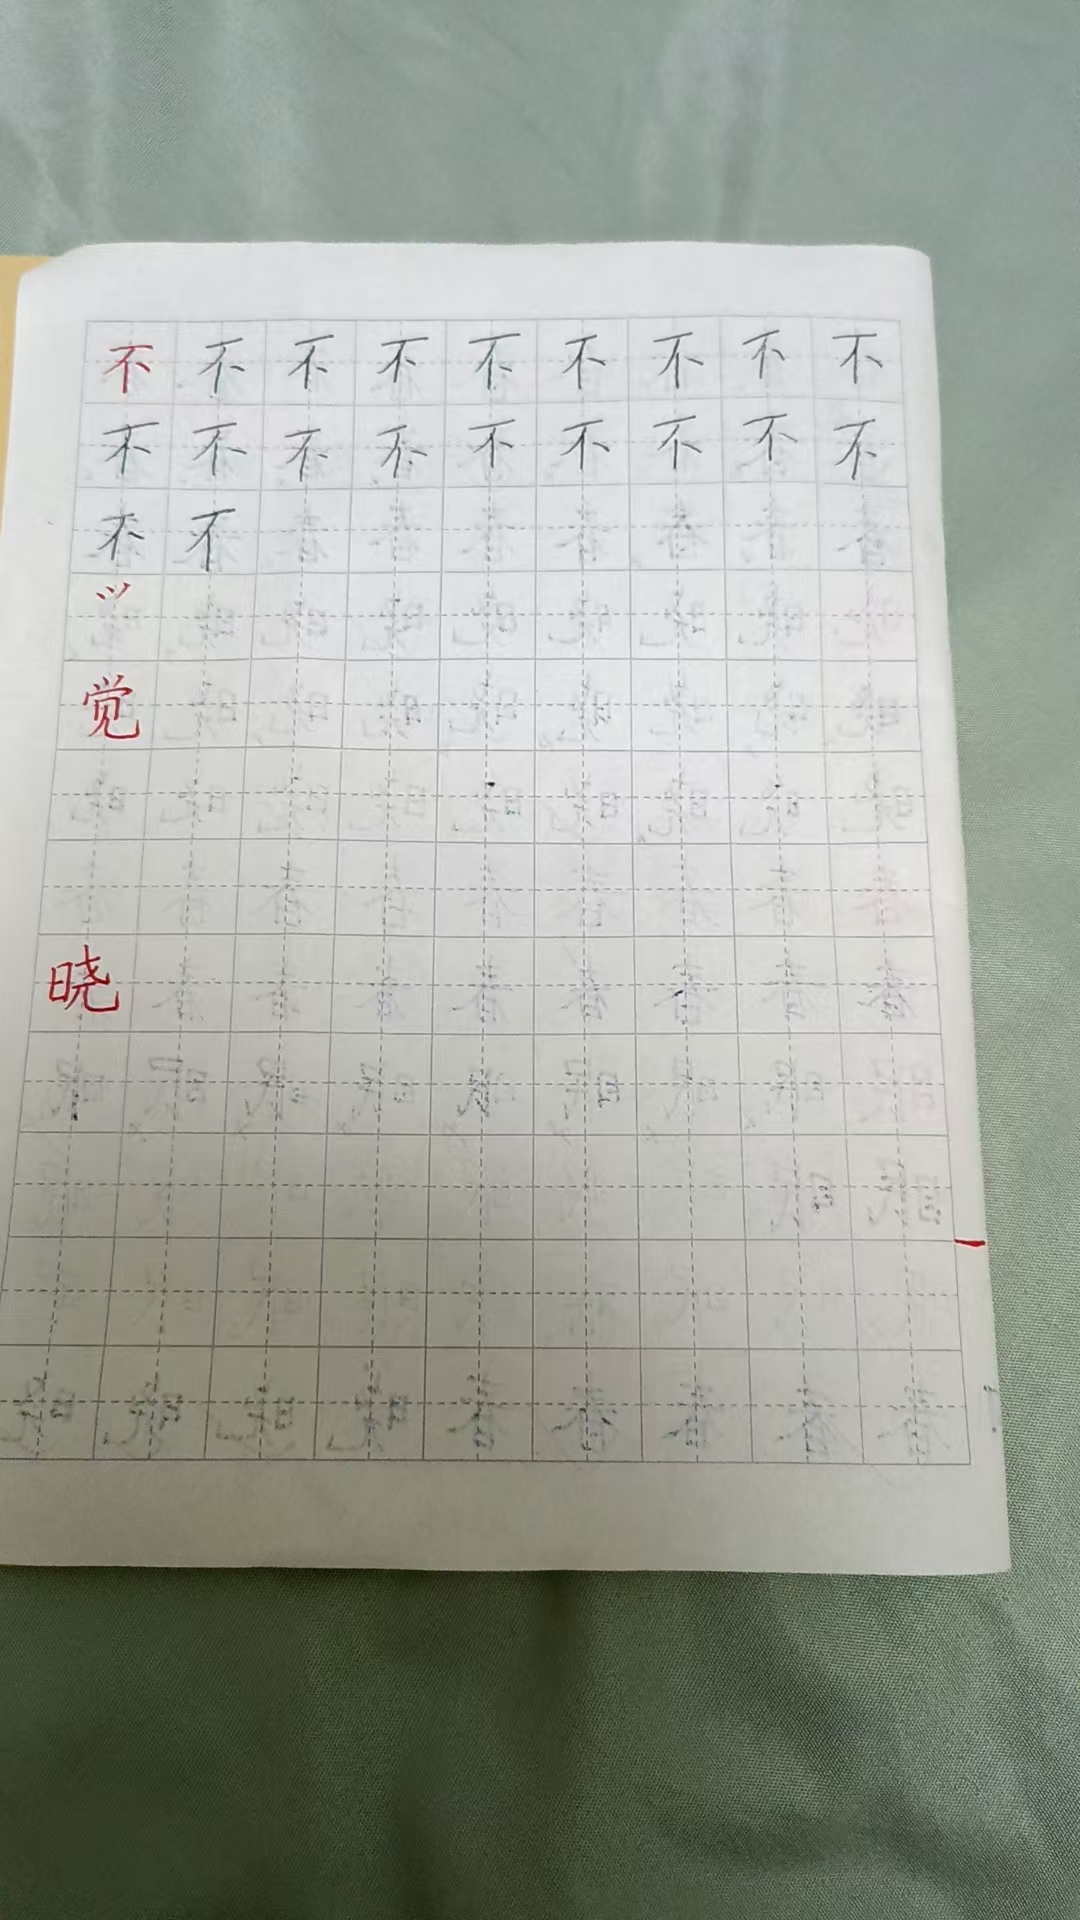 不不不不不不不不不
不不不不不不不不不
不不
觉
晓